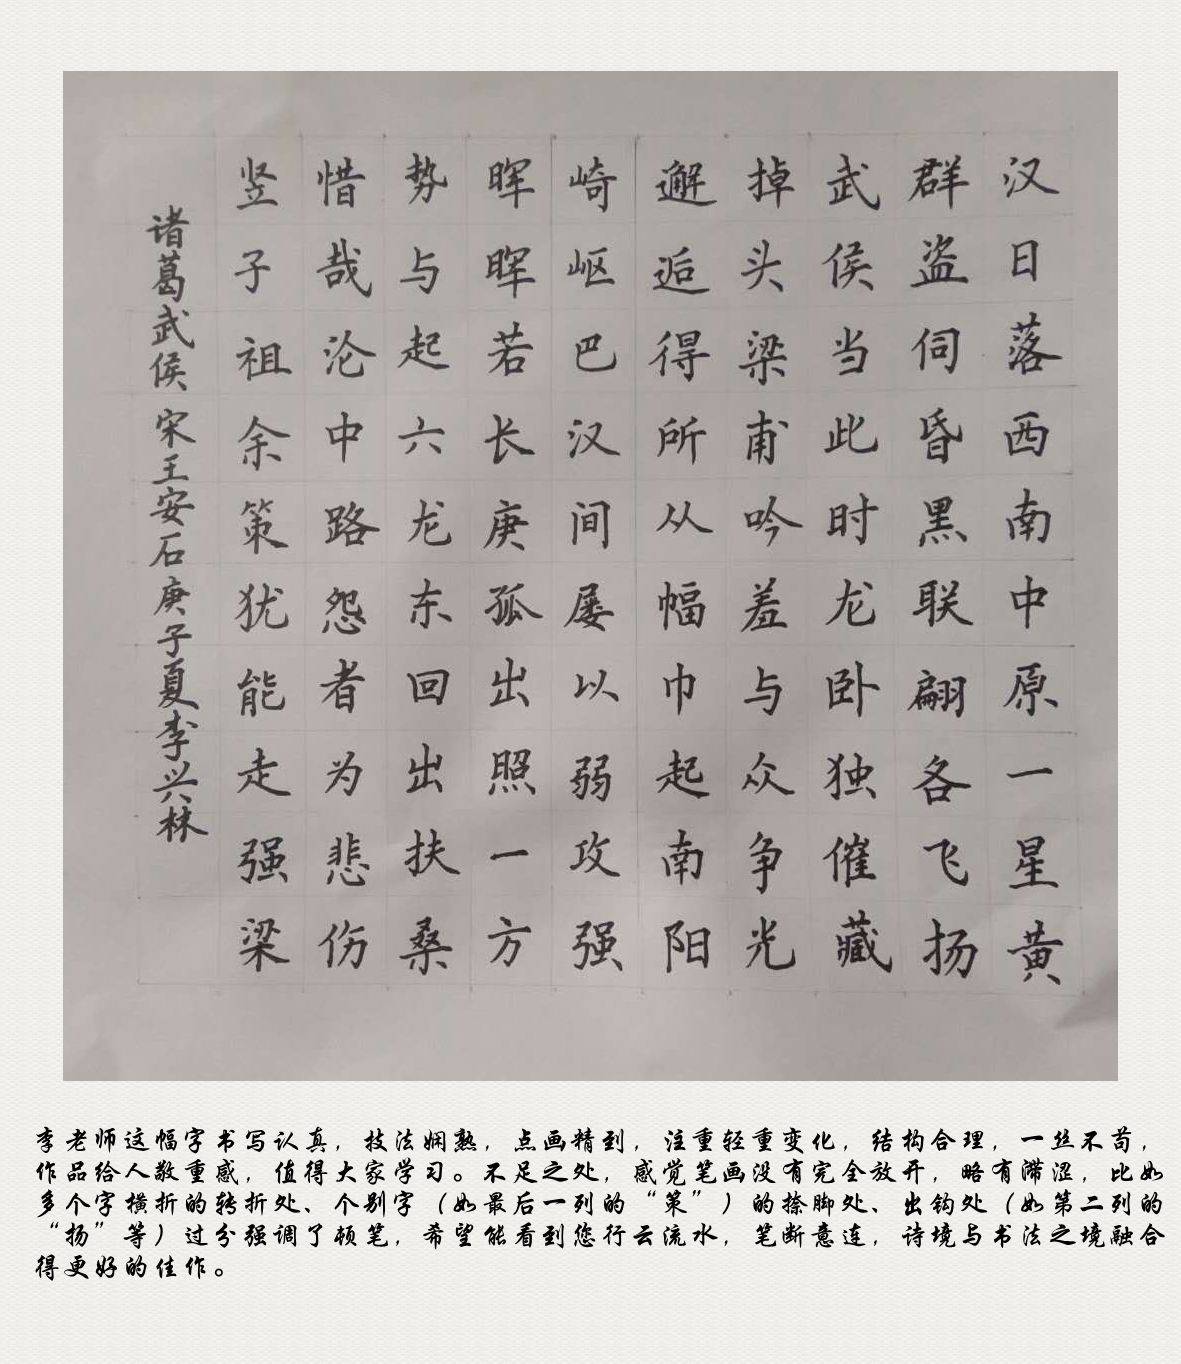 汉日落西南中原一星黄
群盗伺昏黑联翩各飞扬
武侯当此时龙卧独催藏
掉头梁甫吟羞与众争光
邂逅得所从幅巾起南阳
崎岖巴汉间屡以弱攻强
晖晖若长庚孤出照一方
势与起六龙东回出扶桑
惜哉沦中路怨者为悲伤
竖子祖余策犹能走强梁
诸葛武侯 宋王安石庚子夏李兴林
李老师这幅字书写认真，技法娴熟，点画精到，注重轻重变化，结构合理，一丝不苟，
作品给人敬重感，值得大家学习。不足之处，感觉笔画没有完全放开，略有滞涩，比如
多个字横折的转折处、个别字（如最后一列的“策”）的捺脚处、出钩处（如第二列的
“扬”等）过分强调了顿笔，希望能看到您行云流水，笔断意连，诗境与书法之境融合
得更好的佳作。